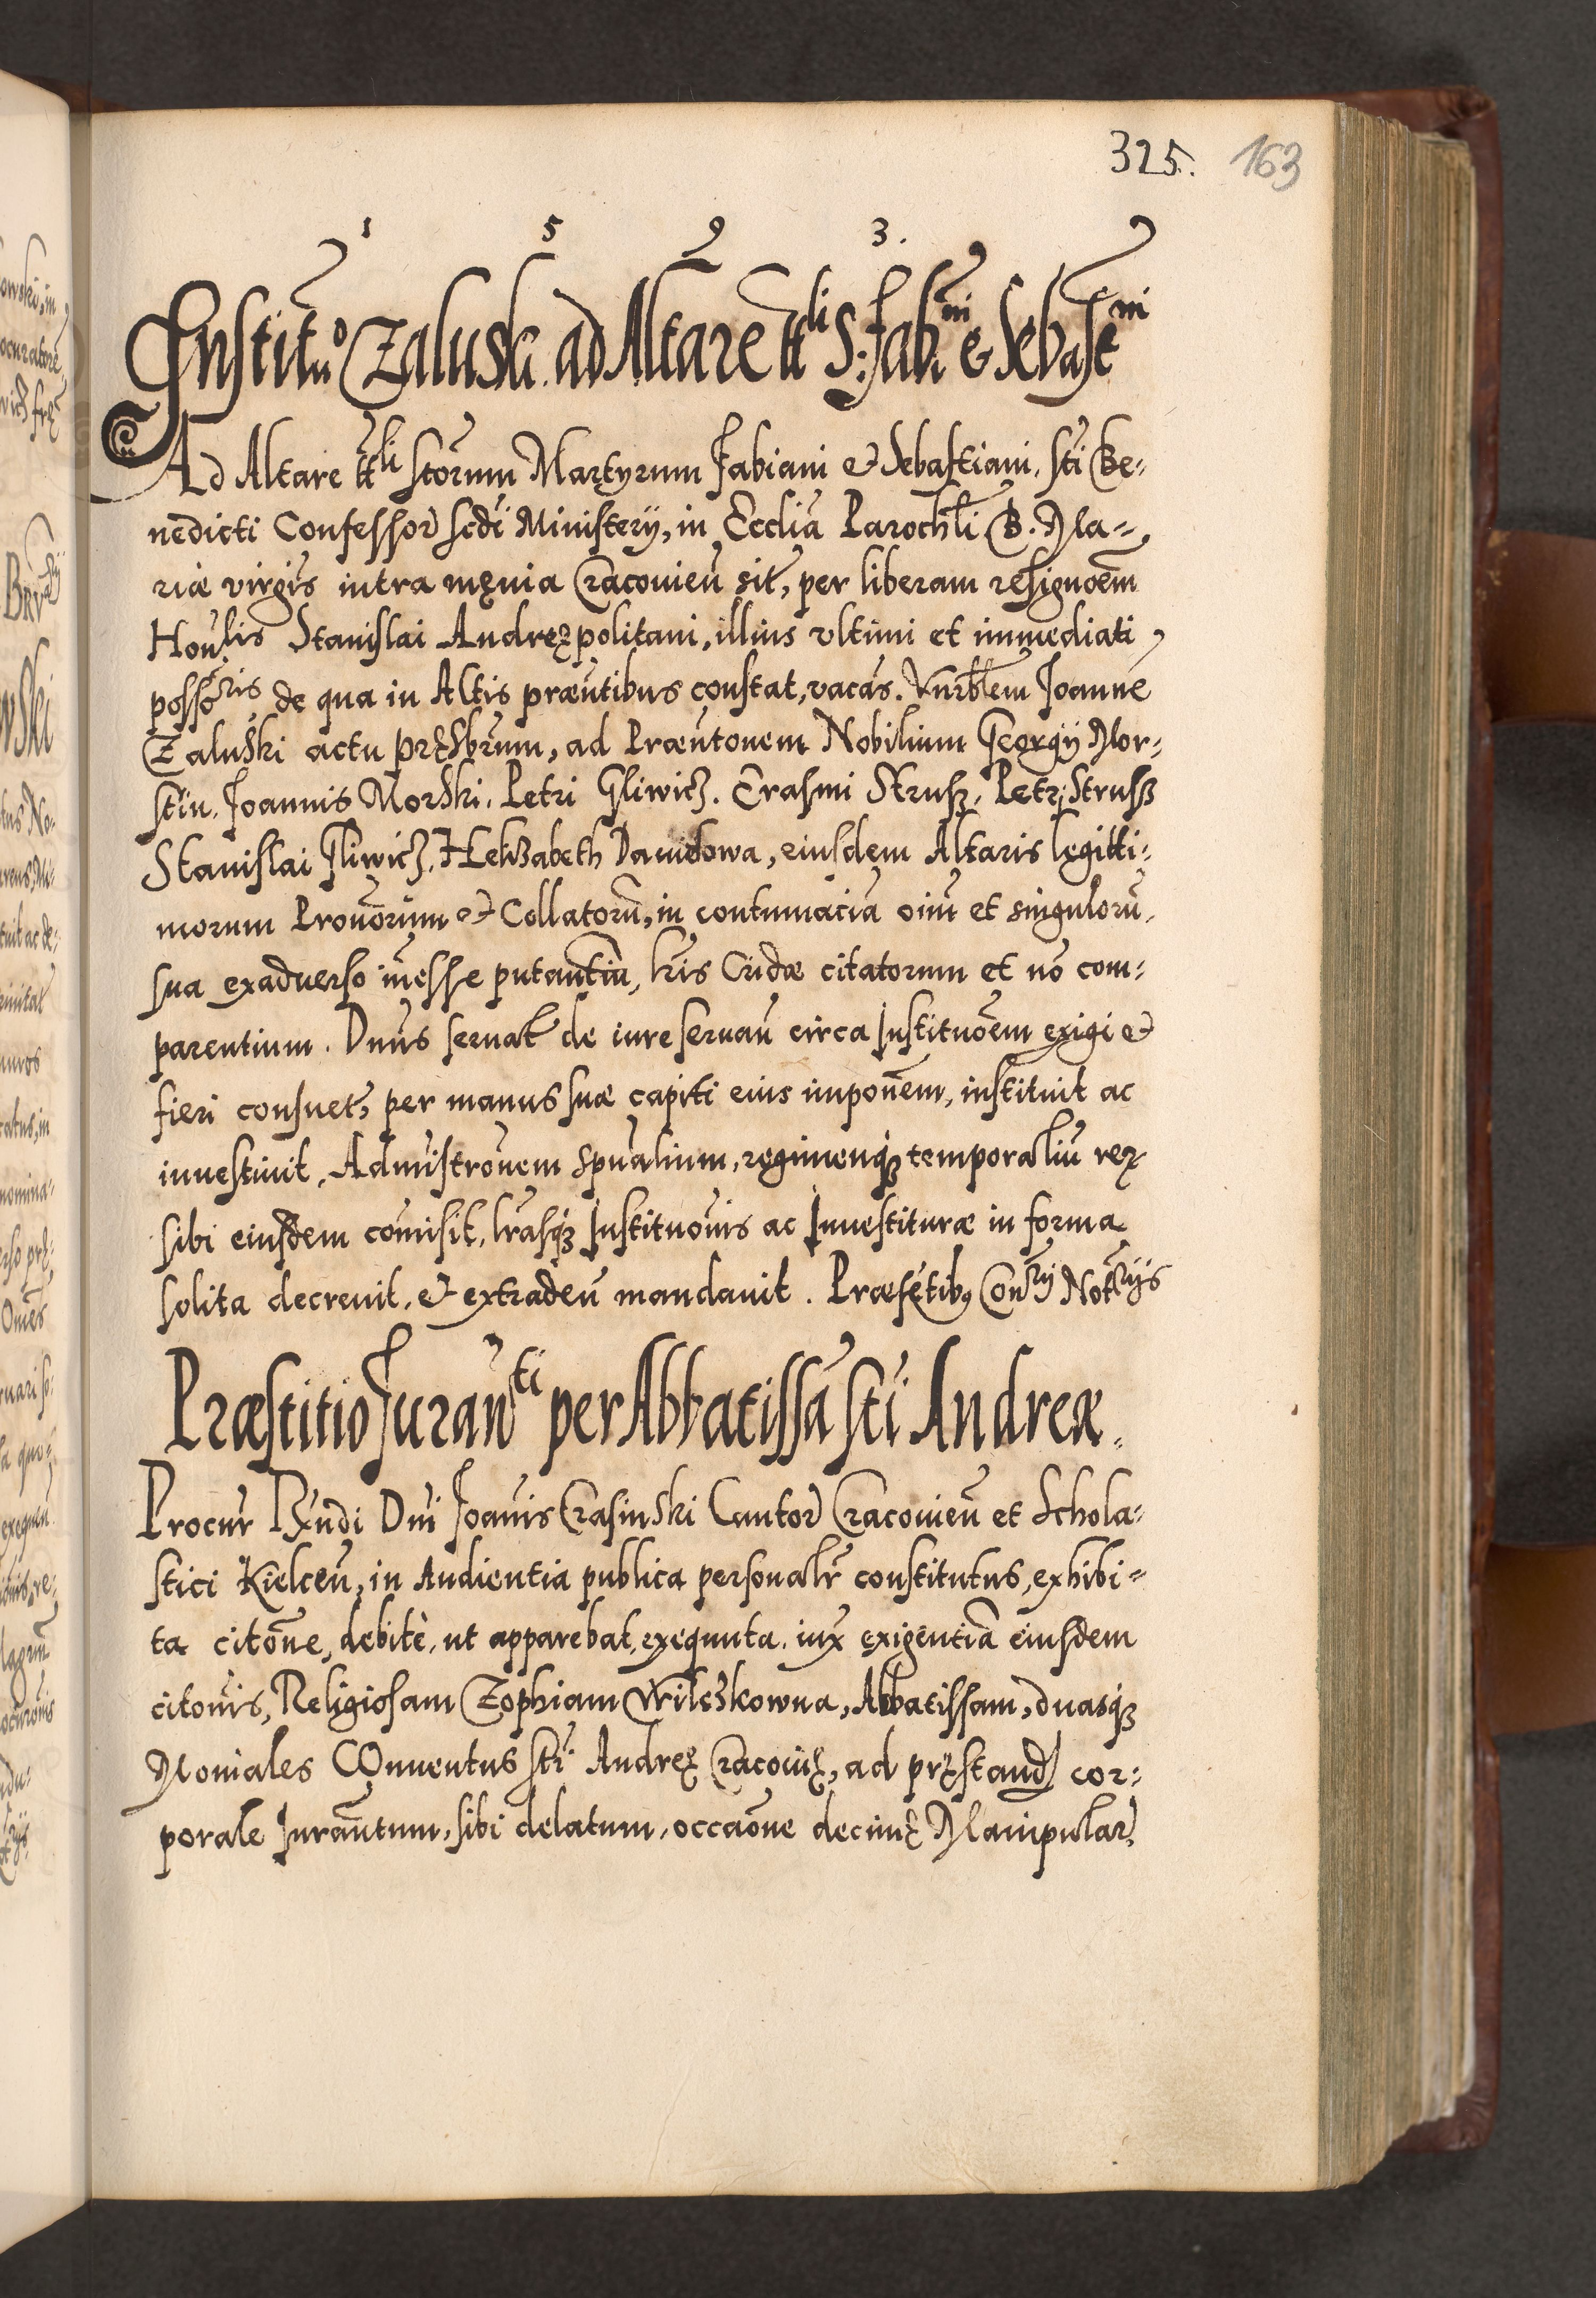 325. 163
1 5 9 3.
Institu° Zaluski ad Altare ttli S: Fab:ni & Sebastni
Ad Altare ttli Sctorum Martyrum Fabiani et Sebastiani, Sti Be-
nedicti Confessor scdi Ministerij, in Ecclia Parochli B. Ma-
riæ virgis intra męnia Cracovien sit, per liberam resignoem
Honlis Stanislai Andrezpolitani, illius ultimi et immediati
possoris de qua in Altis præntibus constat, vacās. Vnrblem Joanne
Zaluski actu pręsbrum, ad Præntonem Nobilium Georgij Mor-
stin, Joannis Morski, Petri Gliwicz. Erasmi Strusz, Petri Strusz
Stanislai Gliwicz, Helizabeth Dauidowa, eiusdem Altaris legitti-
morum Prouorum et Collatorū, in contumaciā oiūm et singulorū
sua exaduerso inesse putantiū, lris Cridæ citatorum et nō com-
parentium. Dnus seruat de iure seruan circa Institnoem exigi et
fieri consuet, per manus suæ capiti eius imponem, instituit ac
inuestiuit, Admistronem Spualium, regimenq temporaliū rer
sibi eiusdem comisit, lrasq Institnonis ac Inuestituræ in forma
solita decreuit, et extraden mandauit. Præsētibus Conrij Notrijs
Præstitio Juranti per Abbatissā Sti Andreæ.
Procur Rndi Dni Joanis Crasinski Cantor Cracouien et Schola-
stici Kielcen, in Audientia publica personalr constitutus, exhibi-
ta citone, debitè, ut apparebat, exequuta, iux exigentiā eiusdem
citonis, Religiosam Zophiam Wilczkowna, Abbatissam, duasq
Moniales COnuentus Sti Andreę Cracouię, ad pręstand cor-
porale Jurantum, sibi delatum, occaone decimę Manipular